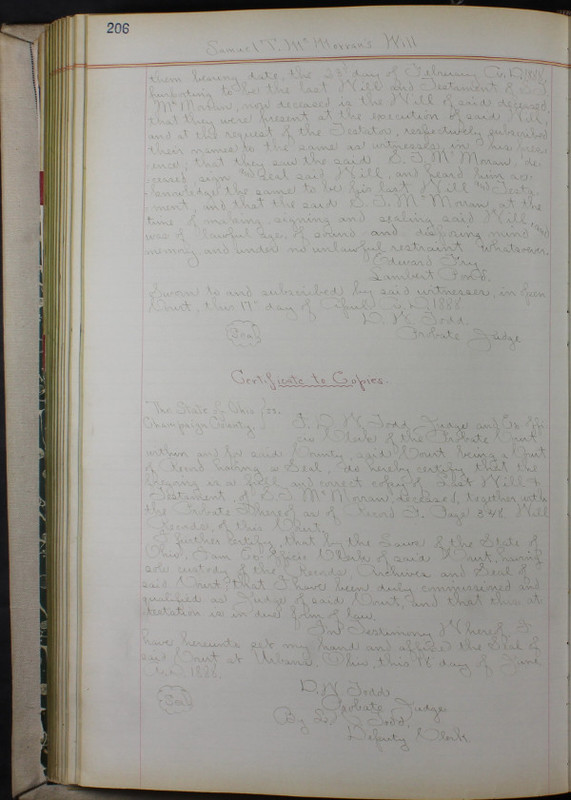 206
Samuel T. Mc Morran's Will
them bearing date, the 23d day of February A.D. 1888,
purporting to be the last Will and Testament of S.T.
Mc Morran, now deceased is the Will of said deceased,
that they were present at the execution of said Will,
and at the request of the Testator, respectively subscribed
their names to the same as witnesses, in his pres-
ence; that they saw the said S.T. Mc Morran, de-
ceased, sign & Seal said Will, and heard him ac-
knowledge the same to be his last Will & Testa-
ment, and that the said S.T. Mc Morran, at the
time of making, signing and sealing said Will,
was of lawful age, of sound and disposing mind and
memory and under no unlawful restraint whatsoever.
Edward Fay
Lambert Pond.
Sworn to and subscribed by said witnesses, in open
Court, this 17th day of April A.D. 1888.
D. W. Todd.
Seal
Probate Judge
Certificate to Copies.
The State of Ohio, ss.
Champaign County.
I, D. W. Todd, Judge and Ex Offi-
cio Clerk of the Probate Court
within and for said County, said Court being a Court
of Record having a Seal, do hereby certify that the
foregoing is a full and correct copy of Last Will &
Testament, of S.T. Mc Morran, deceased, together with
the Probate thereof as of Record Page 348 Will
Records of this Court.
I further certify, that by the Laws of the State of
Ohio, I am Ex Officio Clerk of said Court, having
sole custody of the Records, Archives and Seal of
said Court, that I have been duly commissioned and
qualified as Judge of said Court, and that this at-
testation is in due form of law.
In Testimony Whereof, I
have hereunto set my hand and affixed the Seal of
said Court at Urbana, Ohio, this day of June
A.D. 1888.
D. W. Todd
Seal
Probate Judge
By Todd,
Deputy Clerk